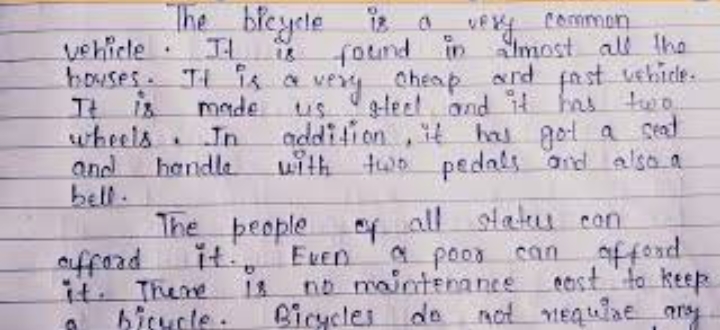 The bicycle is a very common
vehicle. It is found in almost all the
houses. It is a very cheap and fast vehicle.
It is made us steel and it has two
wheels. In addition, it has got a seat
and handle with two pedals and also a
bell.
The people of all status can
afford it. Even a poor can afford
it. There is no maintenance cost to keep
a bicycle. Bicycles do not require any